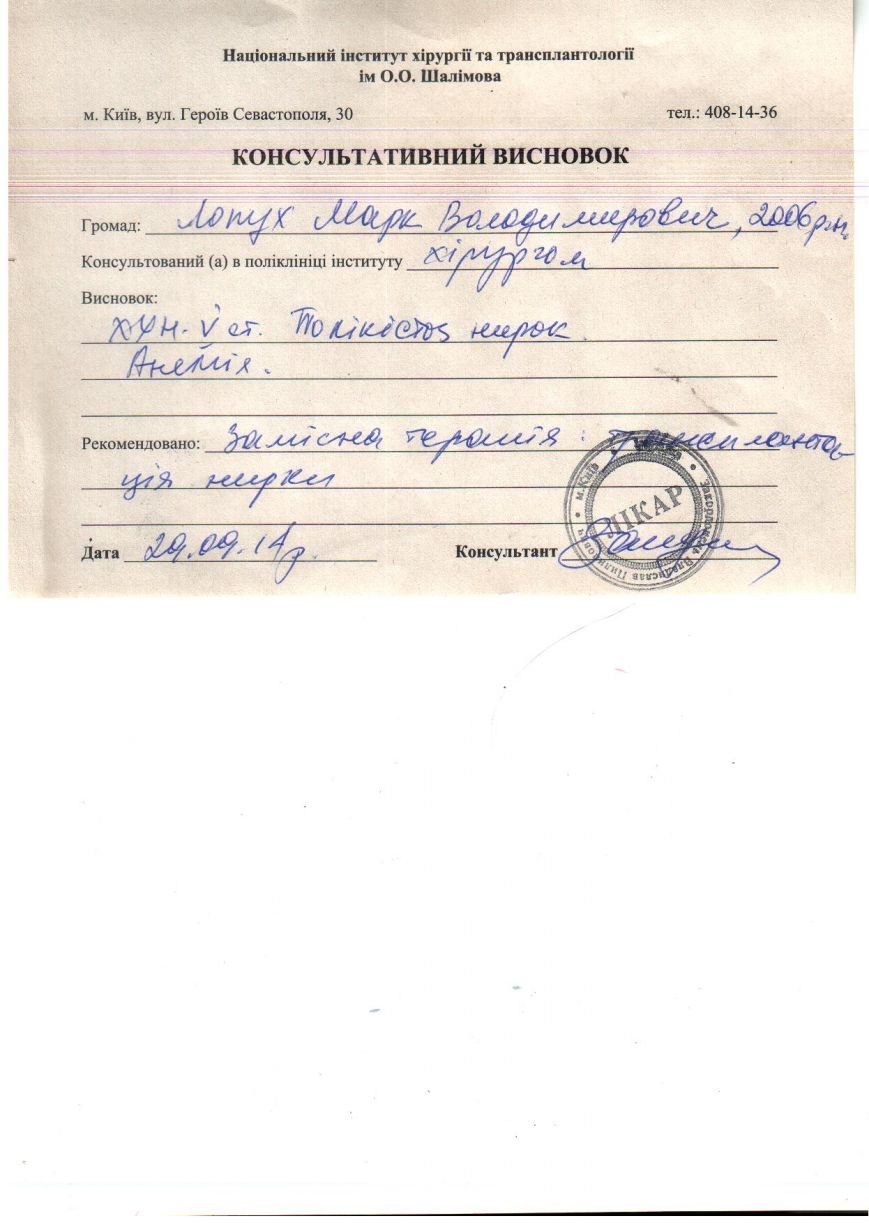 Національний інститут хірургії та трансплантології
ім О.О. Шалімова
м. Київ, вул. Героїв Севастополя, 30 тел.: 408-14-36
КОНСУЛЬТАТИВНИЙ ВИСНОВОК
Громад: Лопух Марк Володимирович, 2006 р.н.
Консультований (а) в поліклініці інституту хірургом
Висновок:
ХХН. V ст. Полікістоз нирок.
Анемія.
Рекомендовано: Замісна терапія: Трансплантація
ція нирки
Дата 29.09.14р. Консультант
м.Київ
ЛІКАР
Владислав Пилипович